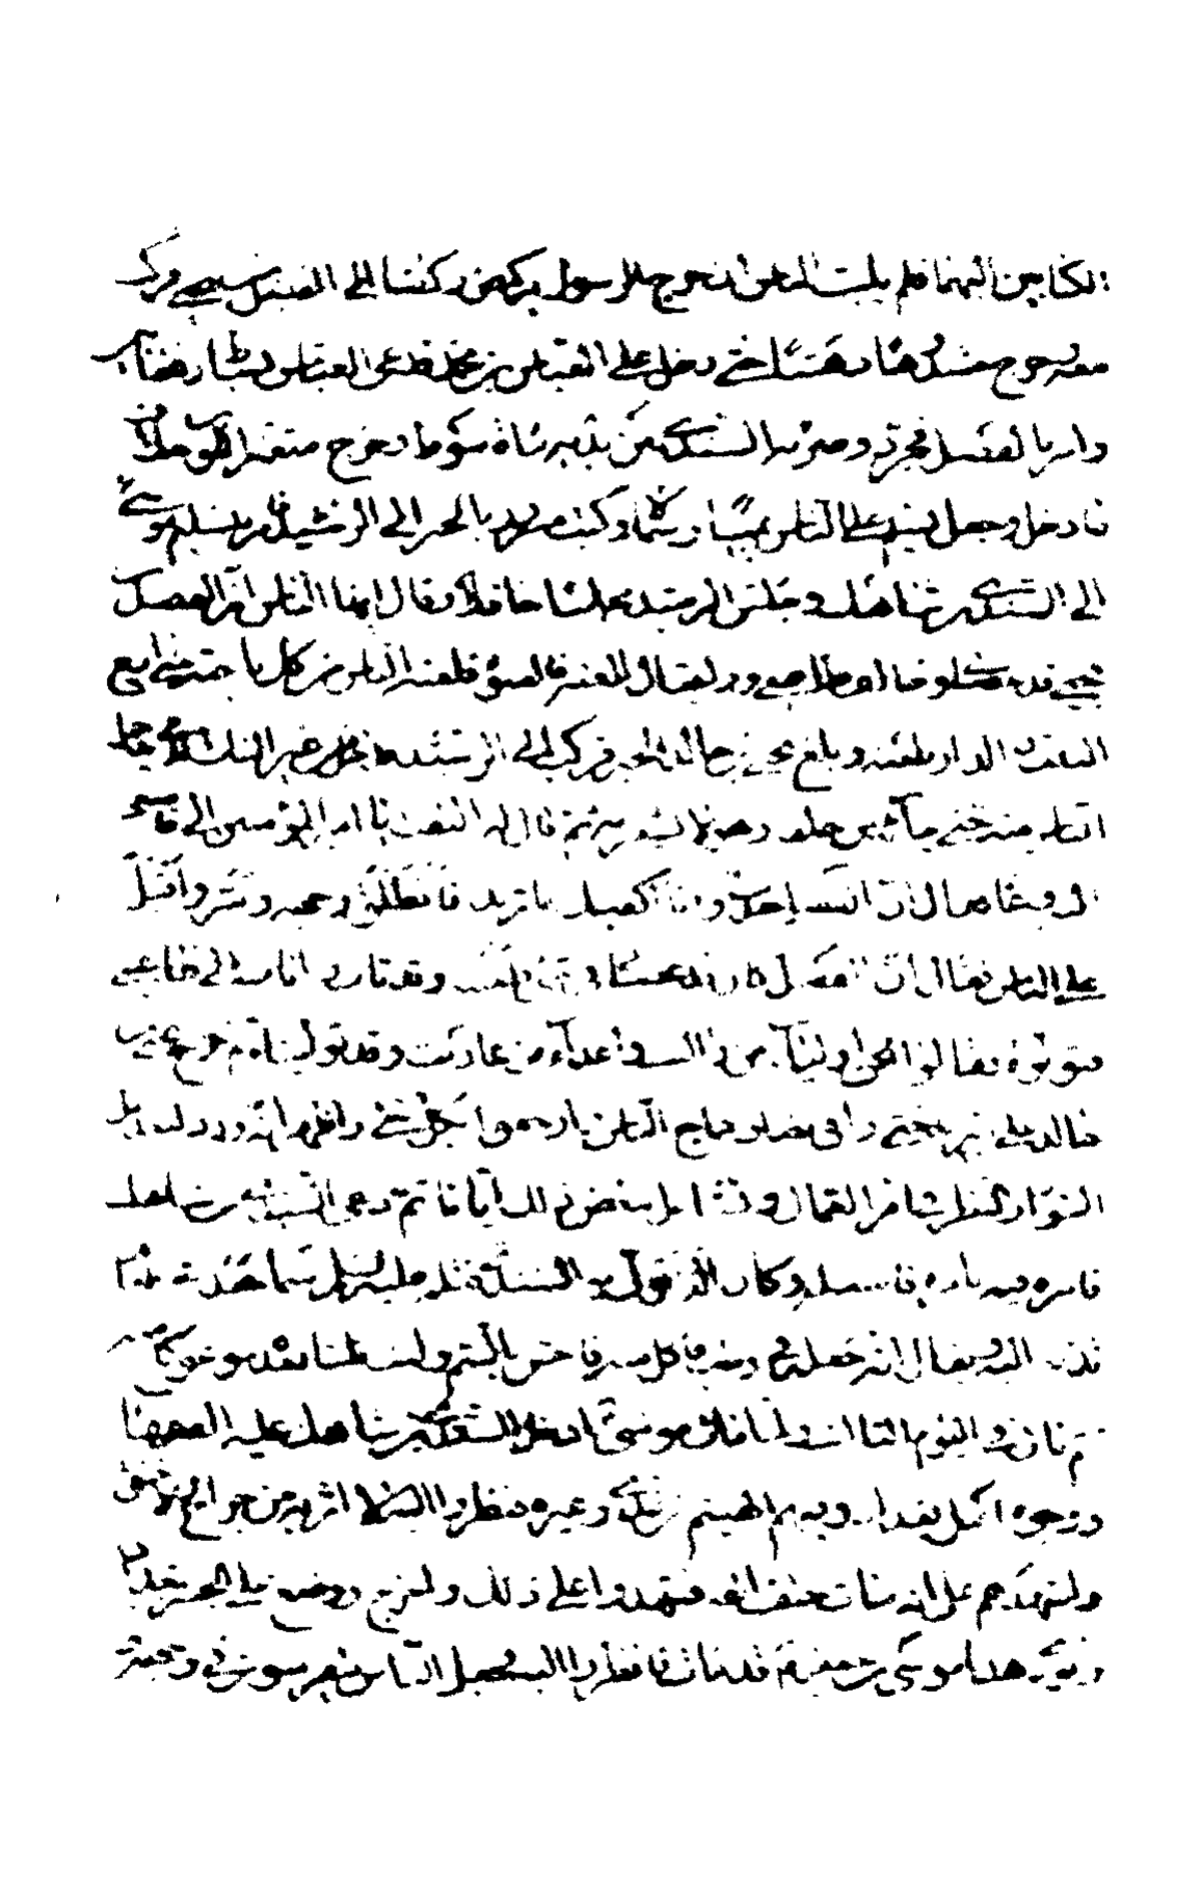 الكتابين اليهما فلم يلبث الناس ان خرج الرسول يركض ركضا الى الفضل بن يحيى فركب
معه وخرج مشدوها دهشا حتى دخل على العباس بن محمد فدعى العباس بسياط وعقابين
وامر بالفضل فجرد وضربه السندي بين يديه مائة سوط وخرج متغير اللون خلاف ما
دخل وجعل يسلم على الناس يمينا وشمالا وكتب مسرور بالخبر الى الرشيد فامر بتسليم موسى
الى السندي بن شاهك وجلس الرشيد مجلسا حافلا وقال ايها الناس ان الفضل بن
يحيى قد عصاني وخالف طاعتي ورايت ان العنه فالعنوه فلعنه الناس من كل ناحية حتى ارتج
البيت والدار بلعنه وبلغ يحيى بن خالد الخبر فركب الى الرشيد فدخل من غير الباب الذي
الناس منه حتى جاءه من خلفه وهو لا يشعر به ثم قال له التفت يا امير المؤمنين الي فاصغى
اليه فزعا فقال ان الفضل حدث وانا اكفيك ما تريد فانطلق وجهه وسر واقبل
على الناس فقال ان الفضل كان قد عصاني في شيء فلعنته وقد تاب واناب الى طاعتي
فتولوه فقالوا نحن اولياء من واليت واعداء من عاديت وقد توليناه ثم خرج يحيى بن
خالد على البريد حتى وافى بغداد فماج الناس وارجفوا بكل شيء واظهر انه ورد لتعديل
السواد والنظر في امر العمال وتشاغل ببعض ذلك اياما ثم دعى السندي بن شاهك
فامره فيه بامره فامتثله وكان الذي تولى به السندي قتله عليه السلام سما جعله في طعام
قدمه اليه ويقال انه جعله في رطب فاكل منه فاحس بالسم ولبث ثلثا بعده موعوكا منه
ثم مات في اليوم الثالث ولما مات موسى ع ادخل السندي بن شاهك عليه الفقهاء
ووجوه اهل بغداد وفيهم الهيثم بن عدي وغيره فنظروا اليه لا اثر به من جراح ولا خنق
واشهدهم على انه مات حتف انفه فشهدوا على ذلك واخرج ووضع على الجسر ببغداد
ونودي هذا موسى بن جعفر قد مات فانظروا اليه فجعل الناس يتفرسون في وجهه